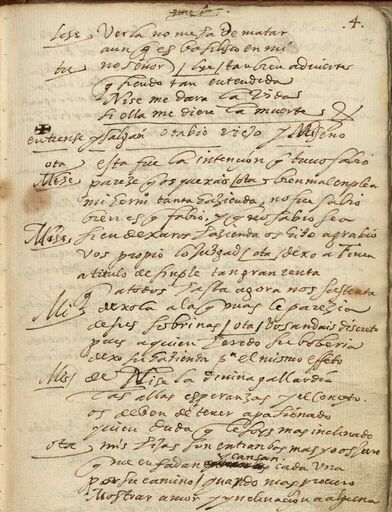 4.
Lise Verla no me ha de matar
aunq es basilisco en mi
tu no señor / Lise / tanbien advierte
q siendo tan entendida
Nise me dara la vida
si ella me diere la muerte
entrense y salgan otabio viejo y Miseno
ota esta fue la intencion q tuvo fabio
Mise pareze q os quexais / ota / bien mal enplea
mi hermano tanta hazienda, no fue sabio
bien es q fabio, y q no sabio sea
Mise si en dexaros hazienda os hizo agrabio
vos propio lo juzgad / ota / dexo a Finea
a titulo de simple tan gran renta
q a todos hasta agora nos sustenta
Mis dexola a la q mas le parezia
de sus sobrinas / ota / vos andais discreto
pues a quien heredo su boberia
dexo su hazienda pa el mismo efeto
Mis de Nise la divina gallardia
las altas esperanzas y el conceto
os deben de tener apasionado
quien duda q le sois mas inclinado
ota mis hijas son entranbas mas yo os juro
q me enfadan y cansan cada una
por su camino quando mas procuro
Mostrar amor y ynclinacion a alguna